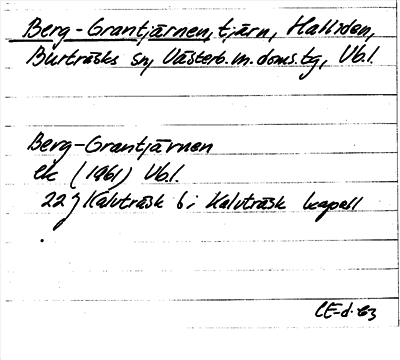 Berg-Grantjärnen, tjärn, Halliden,
Burträsks sn, Västerb. m. doms. tg, Vb.l.
Berg-Grantjärnen
ek (1961) Vb.l.
22 J Kalvträsk b i Kalvträsk kapell
CE-d. 63